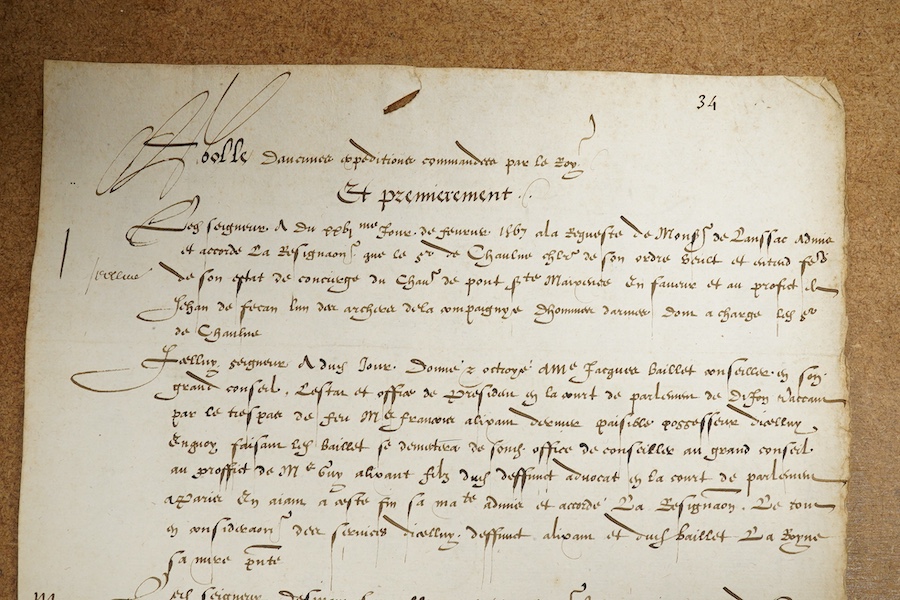 34
Roolle daucunes expeditions commandees par le Roy
Et premierement
Led seigneur A du xxvj me Jour de fevrier 1567 ala Requeste de Mons r de Lanssac admis
et accordé La Resignaon que le s r de Chaulne chlr de son ordre veult et entend fe re
de son estat de concierge du Chau de pont s te Maixence En faveur et au profict de
Jehan de fecan lun des archers dela compaignye dhommes darmes dont a charge led s r
de Chaulne
Icelluy seigneur A dud Jour Donné & octroyé a M e Jacques Baillet conseiller en son
grand conseil Lestat et office de President en la court de parlement de Dijon vaccant
par le trespas de feu M e francois alixant dernier paisible possesseur dicelluy
Enquoy faisant led Baillet se demetera de sond office de conseiller au grand conseil
au proffict de M e Guy alixant filz dud deffunct advocat en la court de parlement
aparis En aiant a ceste fin sa ma te admis et accordé La Resignaon Le tout
en consideraon des services dicelluy deffunct alixant et dud Baillet La Royne
sa mere pnte
led seigneur